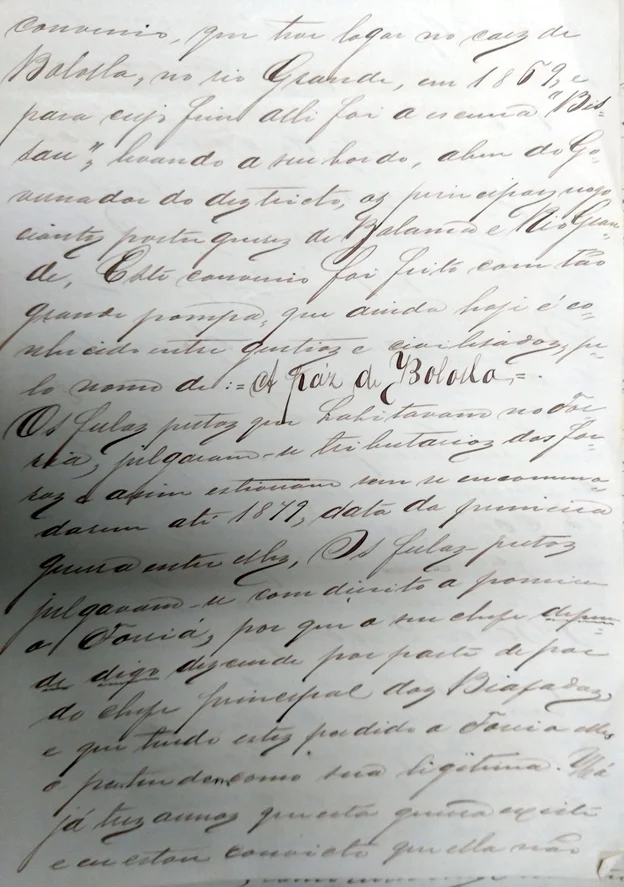 convenio, que teve logar no caez de
Bololla, no rio Grande, em 1869, e
para cujo fim alli foi a escuna "Bis-
sau", levando a seu bordo, alem do Go-
vernador do deztricto, os principaez nego
ciantez portuguezez de Bolama e Rio Gran-
de, Este convenio foi feito com tão
grande pompa, que ainda hoje é co-
nhecido entre gentioz e civilisadoz, pe-
lo nome de := A páz de Bololla, =.
Os fulaz pretoz que habitavam no For
ria, julgavam-se tributarioz dos fo-
raz e assim estiveram sem se encommo-
darem até 1879, data da primeira
guerra entre ellez, Os fulaz-pretoz
julgavam-se com direito a possuir
o Forriá, por que o seu chefe depen-
de digo dezcende por parte de pae
do chefe principal doz Biafadaz,
e que tendo estez perdido o Forria elles
o pertendem como sua legitima. Há
já trez annoz que esta guerra existe
e eu estou convicto que ella não